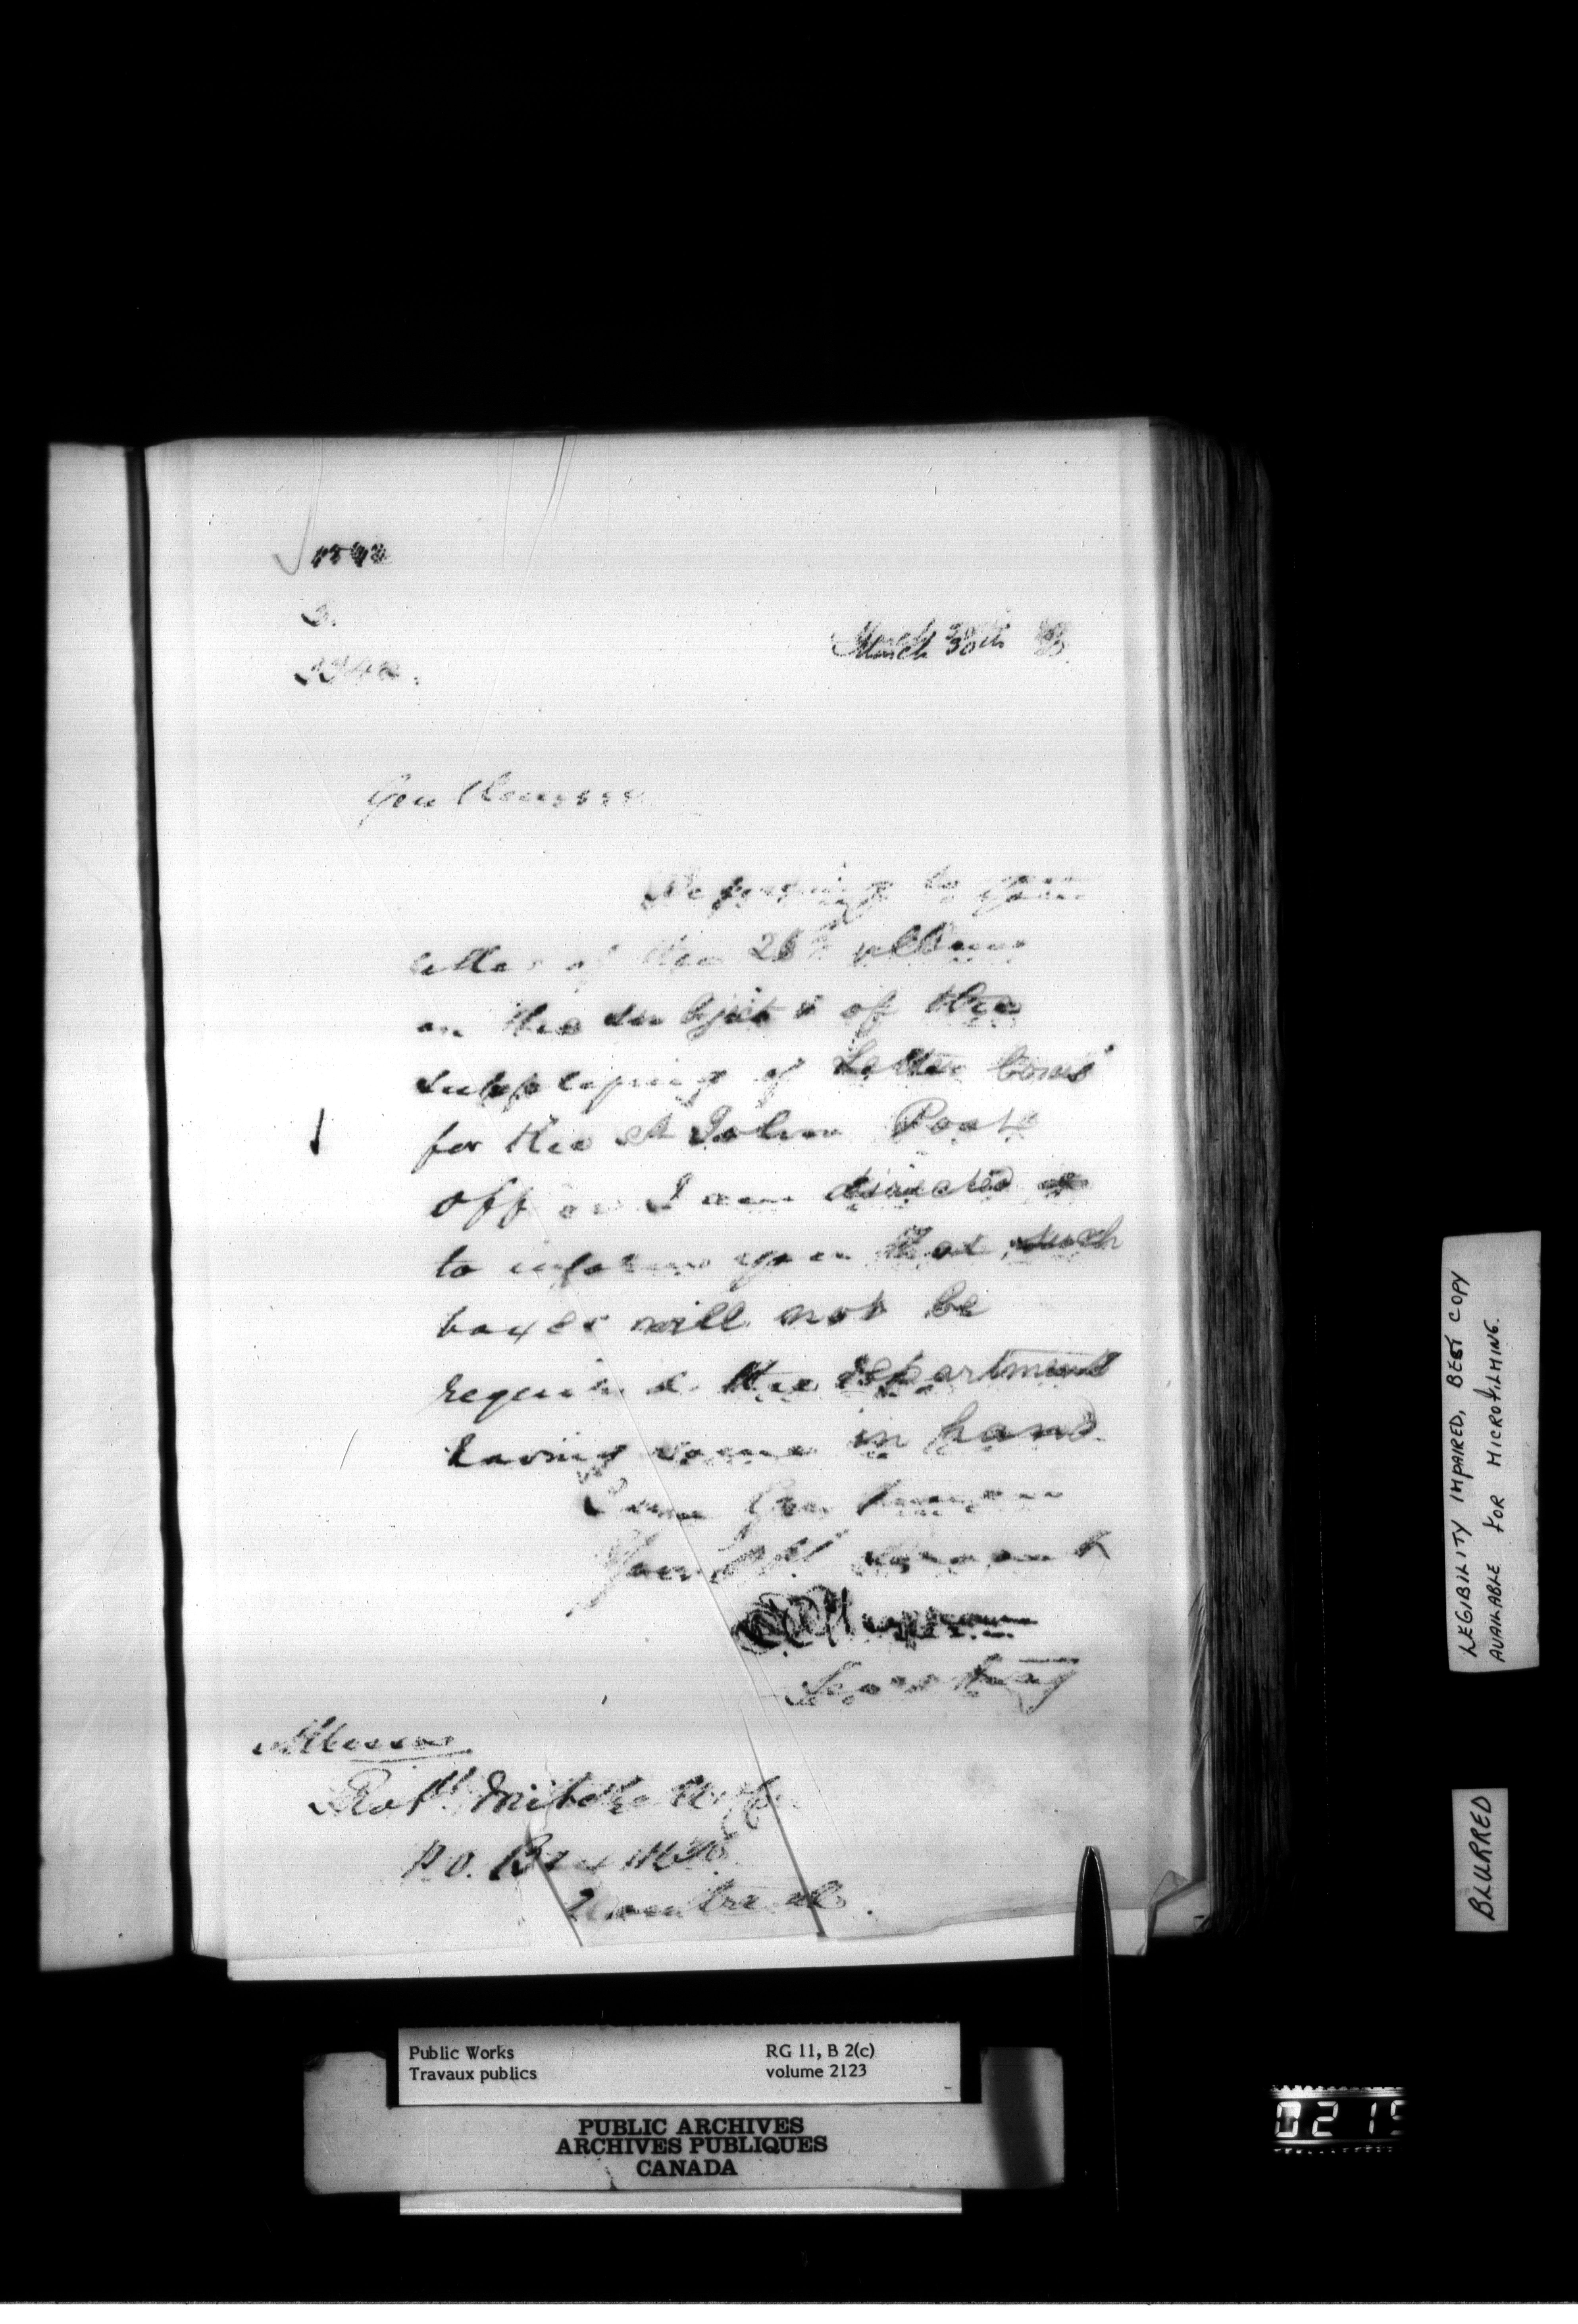 March 30th
Gentlemen
Referring to your
letter of the 26th ultimo
on the subject of the
supplying of Letter boxes
for the St John Post
Office I am directed
to inform you that such
boxes will not be
required the department
having some in hand.
I am Gentlemen
Your Obt Servant
Secretary
Messrs
Robt Mitchell & Co
P.O. Box
Montreal.
LEGIBILITY IMPAIRED, BEST COPY
AVAILABLE FOR MICROFILMING.
BLURRED
Public Works
Travaux publics
RG 11, B 2(c)
volume 2123
PUBLIC ARCHIVES
ARCHIVES PUBLIQUES
CANADA
0215